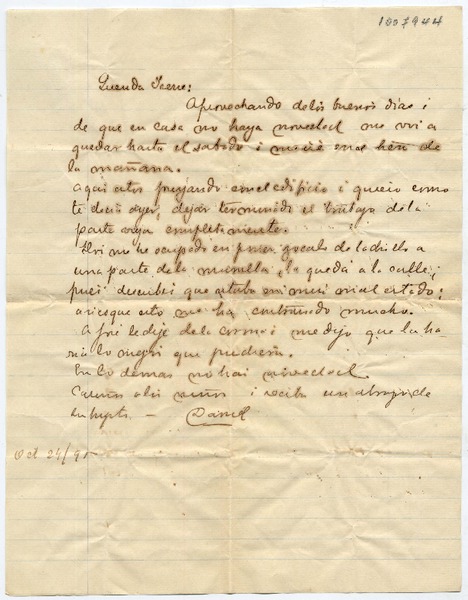 1007944
Querida Irene:
Aprovechando delos buenos dias i
de que en casa no haya novedad me voi a
quedar hasta el sabado i me iré en el tren de
la mañana.
Aqui estoi en el edificio i quiero como
te decia ayer, dejar terminado el trabajo de la
parte vieja completamente.
Hoi me he ocupado en poner zocalo de ladrillo a
una parte dela muralla, la queda a la calle,
pues descubri que estaba en mui mal estado;
asi es que esto me ha mucho.
A José le dije dela i me dijo que la ha-
ria lo mejor que pudiera.
En lo demas no hai novedad.
Cariños alos niños i recibe un abrazo de
tu — Daniel
Oct 24/9